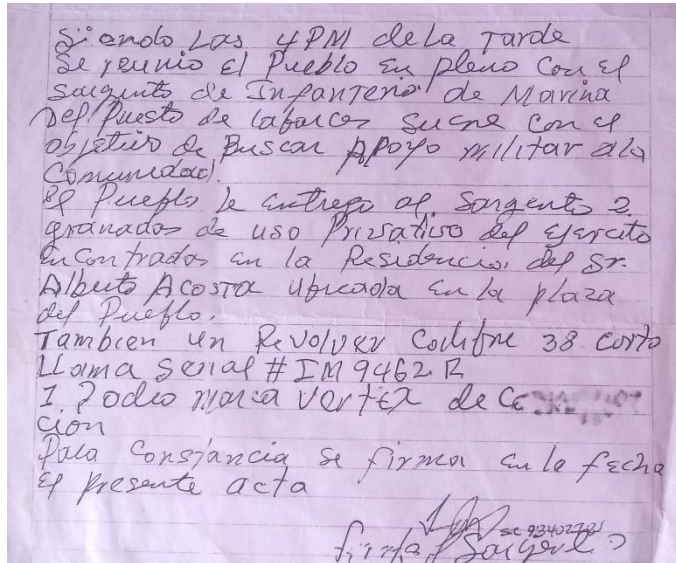 Siendo Las 4PM de La Tarde
Se reunio el Pueblo en pleno Con el
Sargento de Infanteria de Marina
Del Puesto de Labarces Sucre con el
objetivo de Buscar Apoyo militar a la
Comunidad.
El Pueblo le entrego al Sargento 2
granadas de uso Privativo del Ejercito
encontradas en la Residencia del Sr.
Alberto Acosta ubicada en la plaza
del Pueblo.
Tambien un Revolver Calibre 38 corto
LLama Serial # IM9462R
1 Radio marca Vertex de
cion
Para Constancia se firma en la fecha
el presente acta
firma Sargento